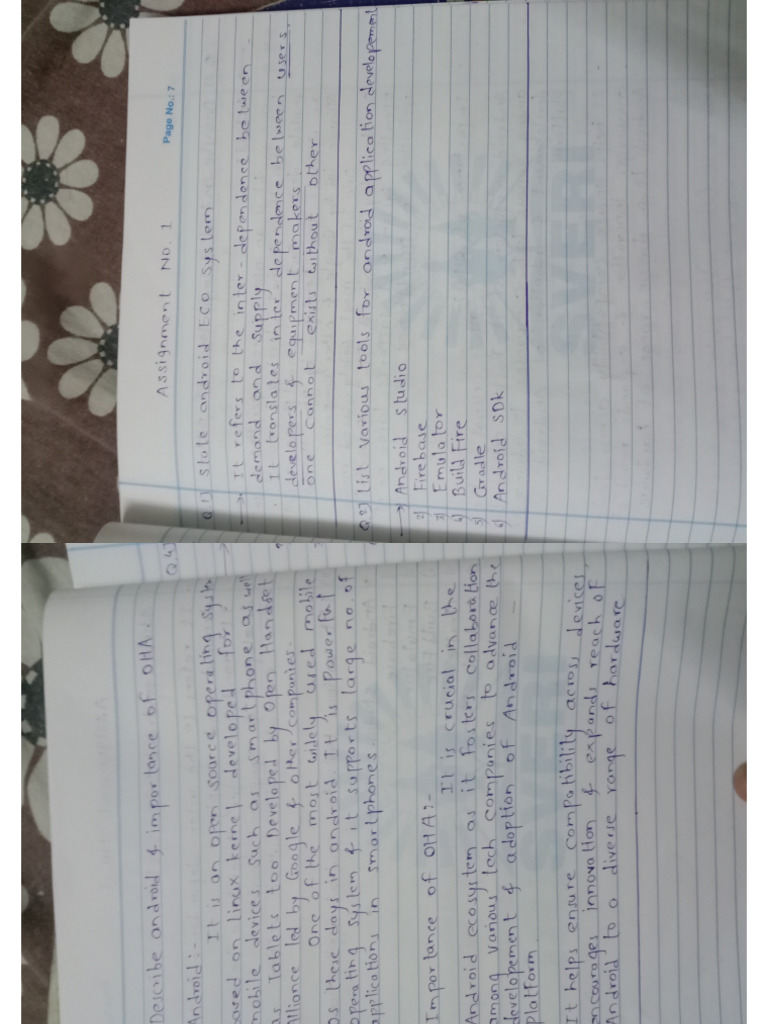 Page No.: 7
Assignment No. 1
Q 1) State android Eco system
→ It refers to the inter-dependence between
demand and supply
. It translates inter-dependence between users,
developers & equipment makers.
one cannot exists without other
Q 2) List various tools for android application developement
→ Android studio
2) Firebase
3) Emulator
4) Build Fire
5) Gradle
6) Android SDK
Q.4)
Describe android & importance of OHA.
Android:-
It is an open source operating syste
based on linux kernel developed for
mobile devices such as smartphone as well
as Tablets too. Developed by Open Handset
Alliance led by Google & other companies.
One of the most widely used mobile
Os these days in android. It is powerful
operating system & it supports large no. of
applications in smartphones.
Importance of OHA:-
It is crucial in the
Android ecosystem as it fosters collaboration
among various tech companies to advance the
developement & adoption of Android
Platform
It helps ensure compatibility across devices,
encourages innovation & expands reach of
Android to a diverse range of hardware